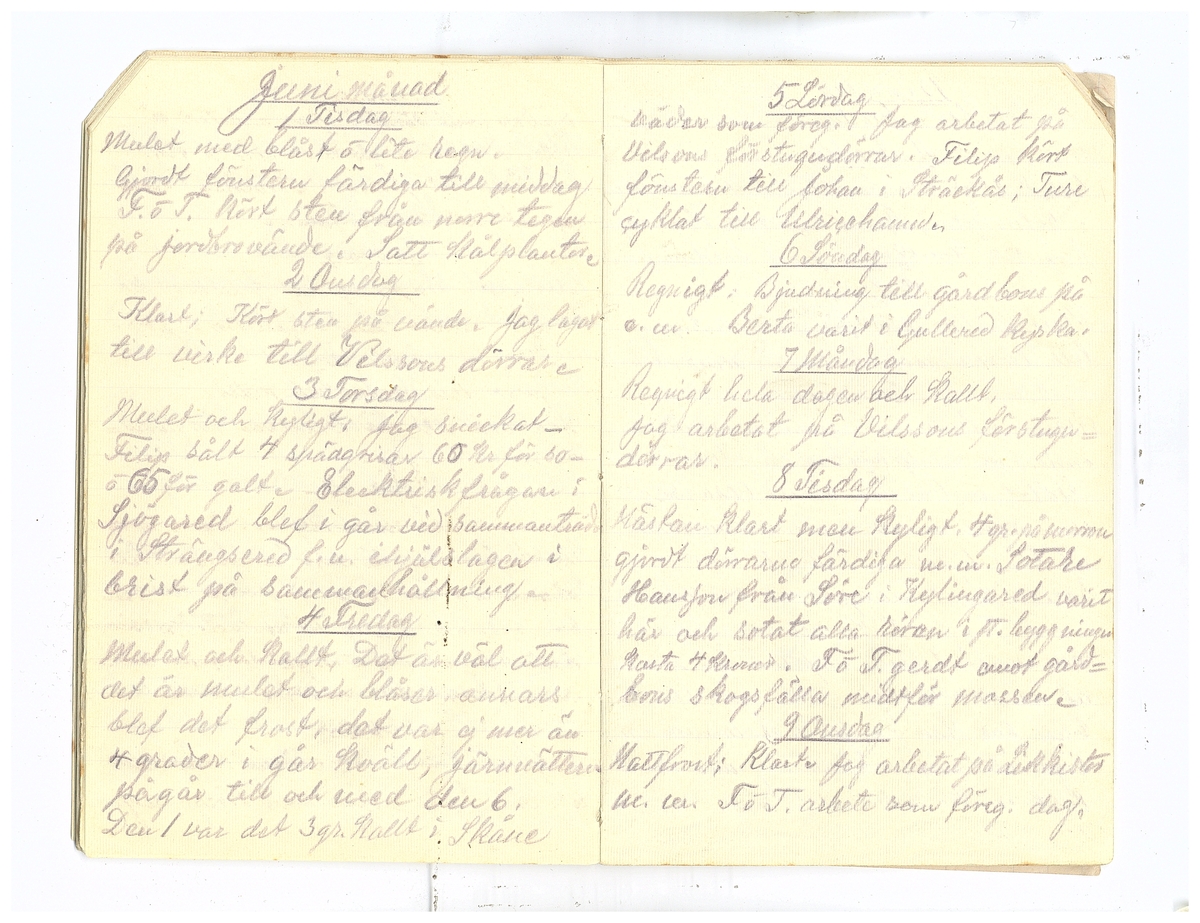 Juni månad
1 Tisdag
Mulet med blåst o lite regn.
Gjordt fönstern färdiga till middag
F. o T. kört sten från norre tegen
på jordbrovände. Satt kålplantor.
2 Onsdag
Klart; Kört sten på vände. Jag lagat
till virke till Vilssons dörrar.
3 Torsdag
Mulet och kyligt. Jag snickat -
Filip sålt 4 spädgrisar 60 Kr för so-
o 65 för galt. Elecktriskfrågan i
Sjögared blef i går vid sammanträde
i Strängsered f.n. ihjälslagen i
brist på sammanhållning.
4 Fredag
Mulet och kallt. Det är väl att
det är mulet och blåser annars
blef det frost, det var ej mer än
4 grader i går kväll, järnnättern
pågår till och med den 6.
Den 1 var det 3 gr. kallt i Skåne
5 Lördag
väder som föreg. Jag arbetat på
Vilsons förstugudörrar. Filip kört
fönstern till Johan i Sträckås; Ture
cyklat till Ulricehamn.
6 Söndag
Regnigt. Bjudning till gårdbons på
e.m. Berta varit i Gullered kyrka.
7 Måndag
Regnigt hela dagen och kallt.
Jag arbetat på Vilssons förstugu=
dörrar.
8 Tisdag
Nästan klart men kyligt. 4 gr. på morron
gjordt dörrarna färdiga m.m. Sotare
Hansson från Löre i Kylingared varit
här och sotat alla rören i st. byggningen
kosta 4 kronor. F o T. gerdt emot gård=
bons skogsfälla midtför mossen.
9 Onsdag
Nattfrost; Klart. Jag arbetat på Likkistor
m.m. F o T. arbete som föreg. dag.